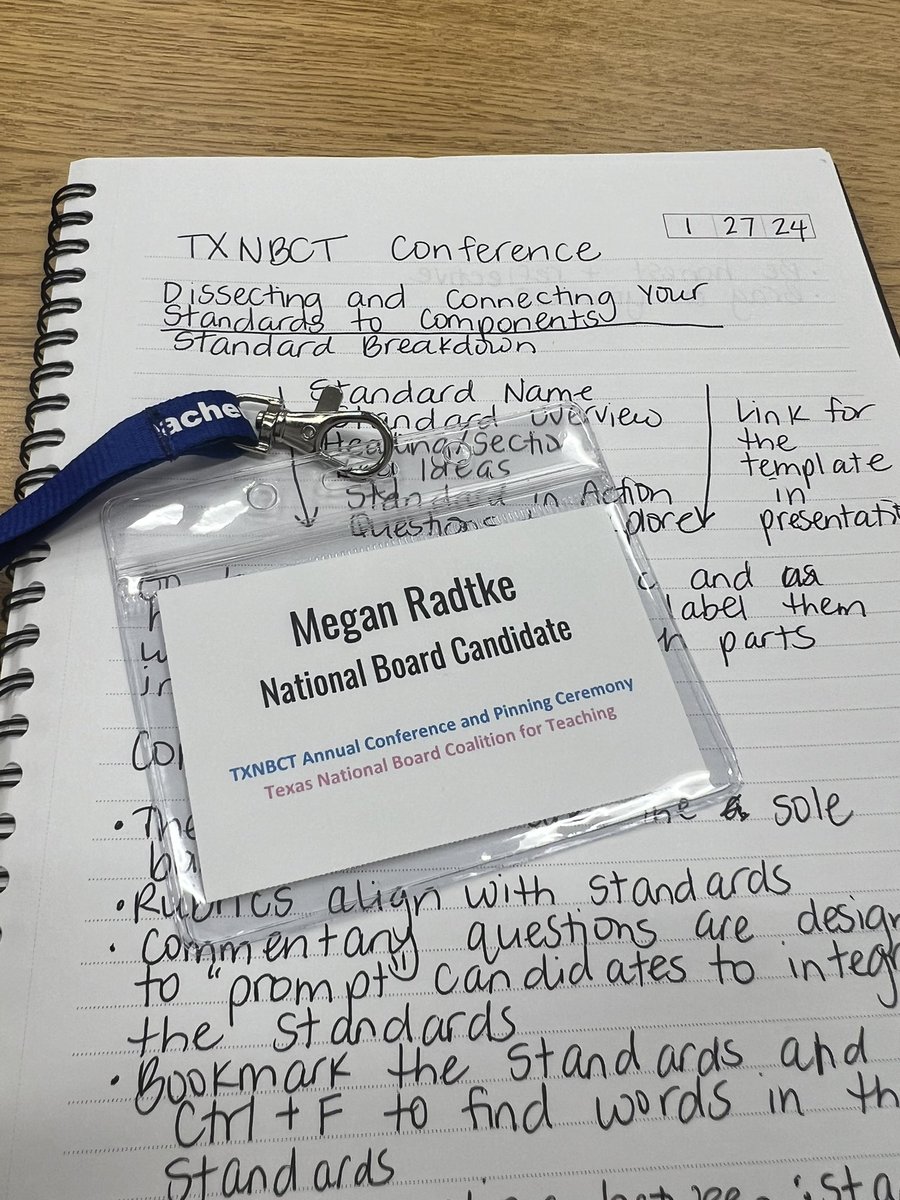 1 27 24
TXNBCT Conference
Dissecting and connecting Your
Standards to components
Standard Breakdown
Standard Name
Standard overview
Heading/Sectio
Ideas
Standard in Action
Questions plore
Link for
the
template
in
presentati
ache
and as
label them
parts
Megan Radtke
National Board Candidate
TXNBCT Annual Conference and Pinning Ceremony
Texas National Board Coalition for Teaching
The the sole
Rubrics align with standards
Commentary questions are design
to "prompt" candidates to integr
the standards
Bookmark the standards and
Ctrl + F to find words in th
Standards